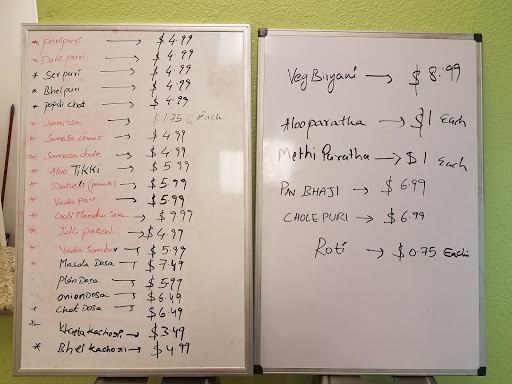 * panipuri → $4.99
* Dahi puri → $4.99
* Serpuri → $4.99
* Bhelpuri → $4.99
* papdi chat → $4.99
* Samosa → $1.75 Each
* Samosa chaat → $4.99
* Samosa chole → $4.99
* Aloo TIKKI → $5.99
* Dabeli → $5.99
* Vada pav → $5.99
* Gobi Manchurian → $9.99
* Idli → $4.99
* Vada Sambar → $5.99
* Masala Dosa → $7.49
Plain Dosa → $5.99
onion Dosa → $6.49
* Chat Dosa → $6.49
* Khasta kachori → $3.49
* Bhel kachori → $4.99
Veg Biryani → $8.99
Alooparatha → $1 Each
Methi Paratha → $1 Each
PAV BHAJI → $6.99
CHOLE PURI → $6.99
Roti → $0.75 Each